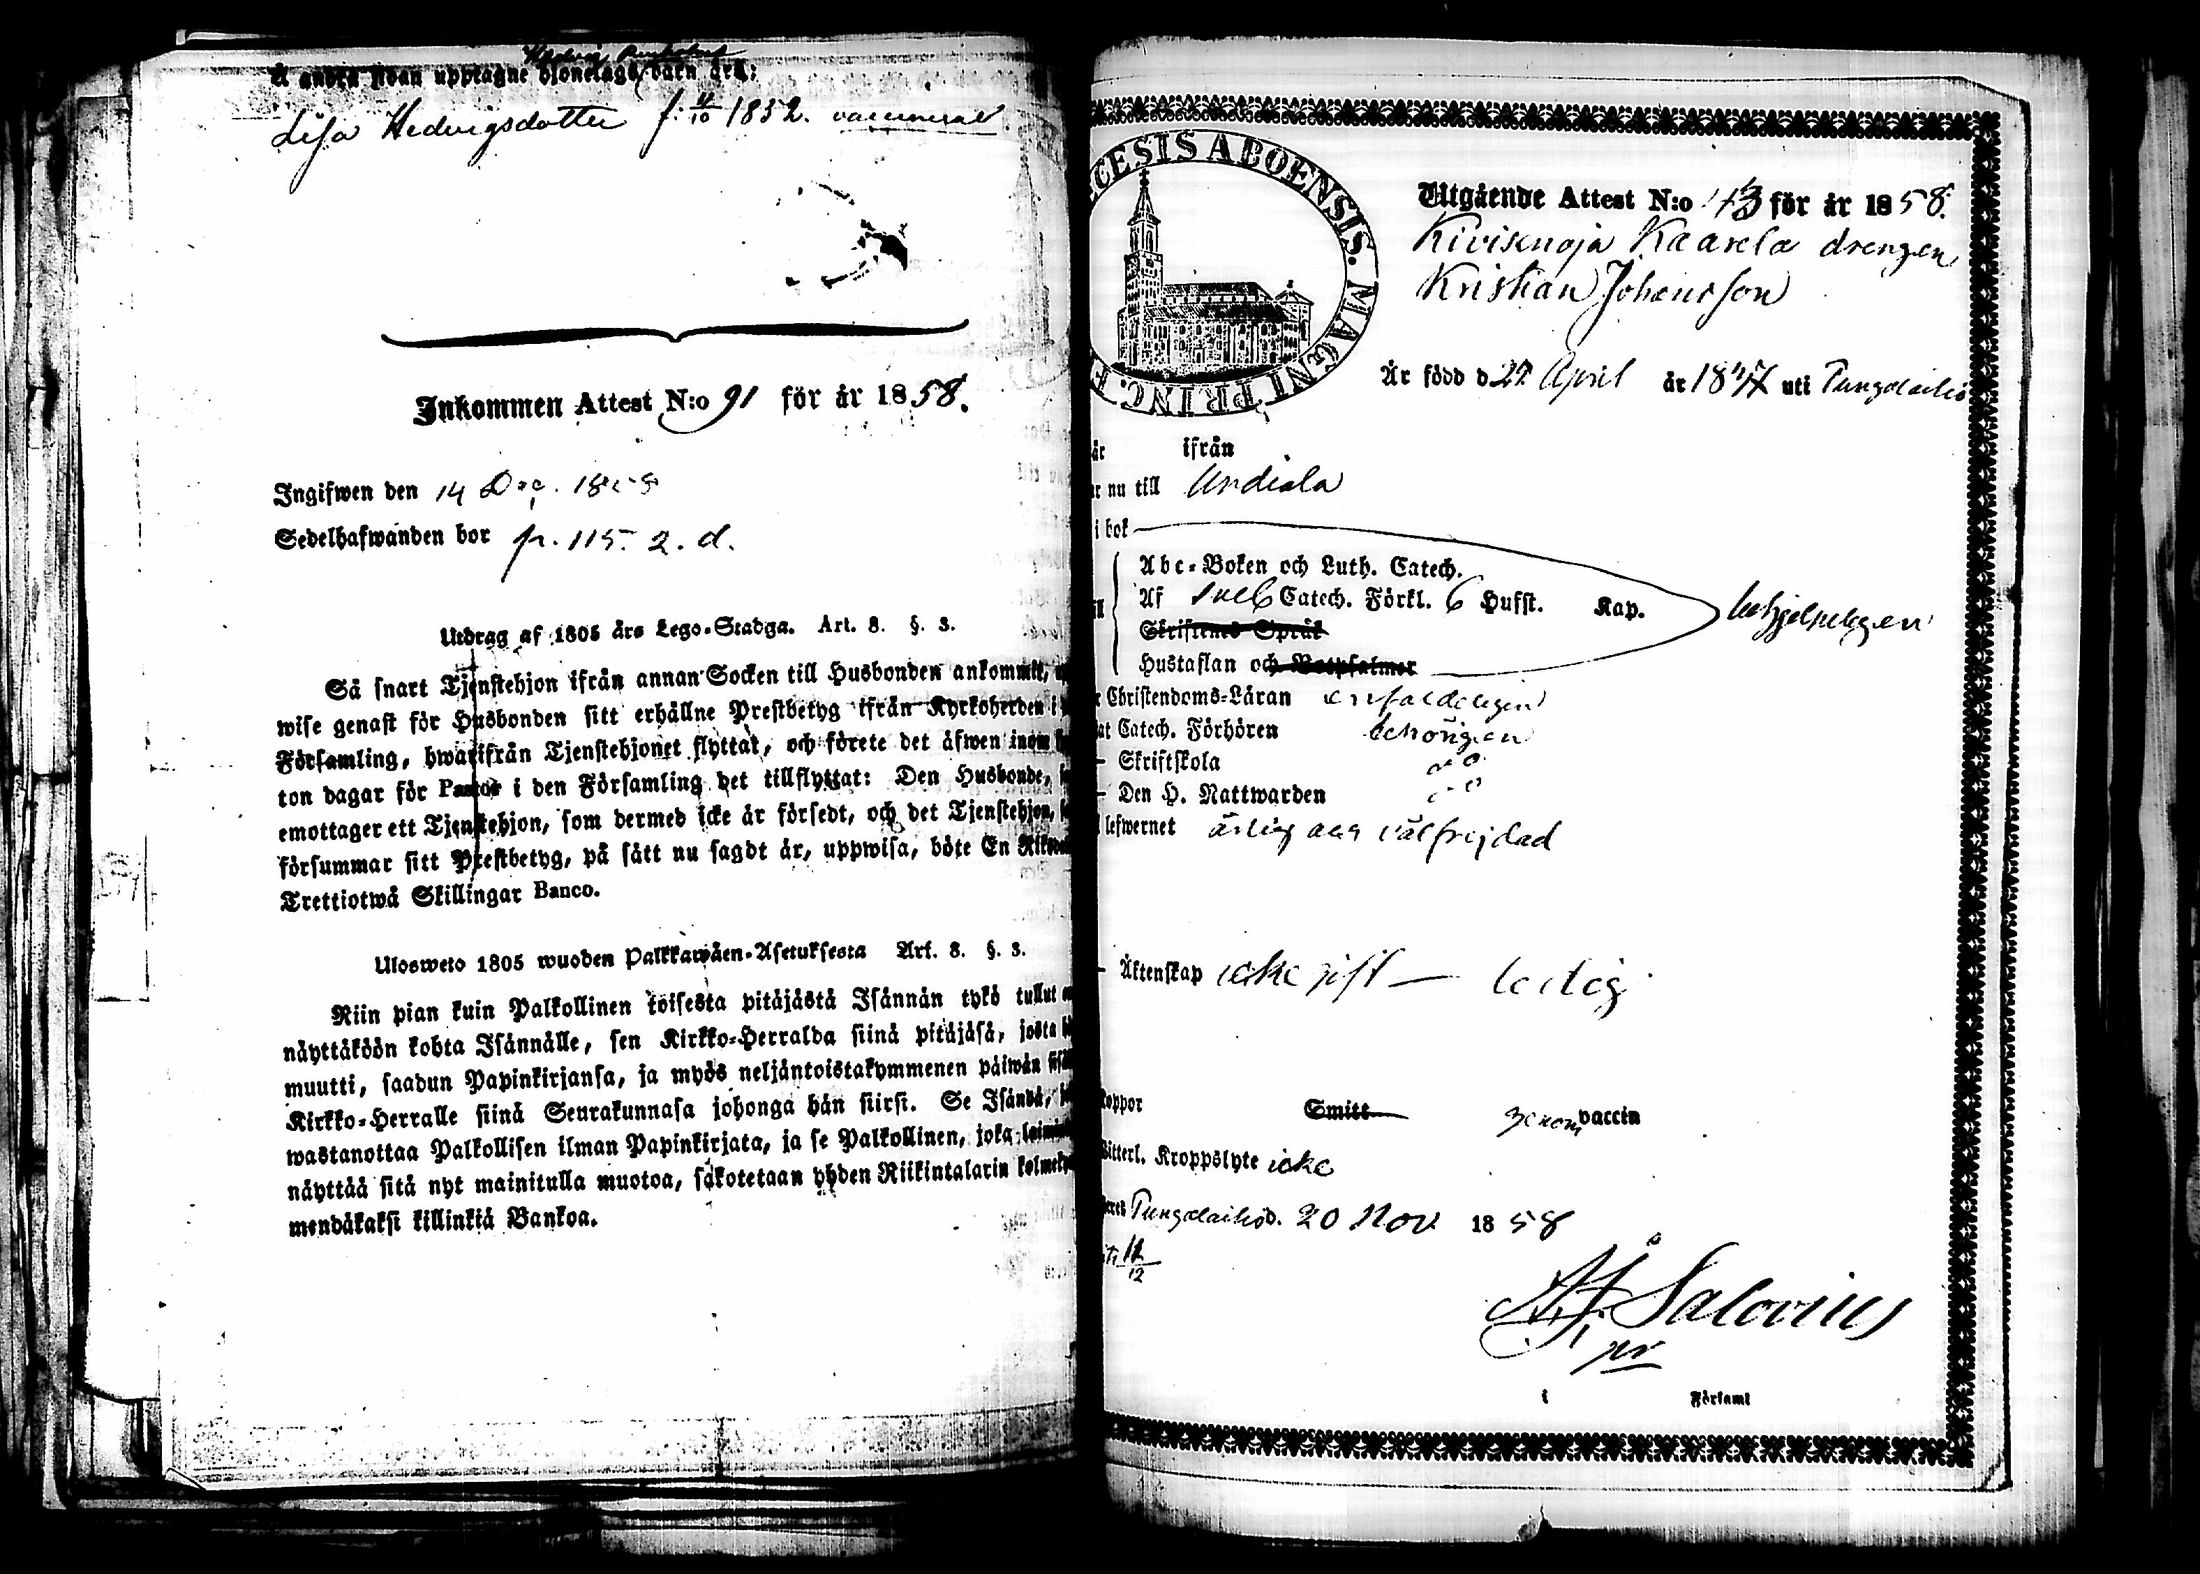 Å andra sidan upptagne hjonelags barn äro:
Lisa Hedvigsdotter f. 4/10 1852. vaccinerad
Inkommen Attest N:o 91 för år 1858.
Ingifwen den 14 Dec. 1858
Sedelhafwanden bor fr. 115. 2. d.
Utdrag af 1805 års Lego-Stadga. Art. 8. §. 3.
Så snart Tjenstehjon ifrån annan Socken till Husbonden ankommit,
wise genast för Husbonden sitt erhållne Prestbetyg ifrån Kyrkoherden i
Församling, hwarifrån Tjenstehjonet flyttat, och förete det äfwen inom
ton dagar för Pastor i den Församling det tillflyttat: Den Husbonde,
emottager ett Tjenstehjon, som dermed icke är försedt, och det Tjenstehjon,
försummar sitt Prestbetyg, på sätt nu sagdt är, uppwisa, böte En
Trettiotwå Skillingar Banco.
Ulosweto 1805 wuoden Palkkawäen-Asetuksesta Art. 8. §. 3.
Niin pian kuin Palkollinen toisesta pitäjästä Isännän tykö tullut
näyttäköön kohta Isännälle, sen Kirkko-Herralda siinä pitäjäsä, josta
muutti, saadun Papinkirjansa, ja myös neljäntoistakymmenen päiwän
Kirkko-Herralle siinä Seurakunnasa johonga hän siirsi. Se Isändä,
wastanottaa Palkollisen ilman Papinkirjata, ja se Palkollinen, joka
näyttää sitä nyt mainitulla muotoa, sakotetaan yhden Riikintalarin
mendäkaksi killinkiä Bankoa.
CESIS ABOENSIS. MAGNI PRINC. F
Utgående Attest N:o 43 för år 1858.
Kaarela drengen
Kristian Johansson
Är född d 27 April år 18 uti Pungalaitio
är ifrån
nu till Urdiala
i bok
Abc-Boken och Luth. Catech.
Af Catech. Förkl. 6 Hufst. Kap.
behjelpligen
Skriftenes Språk
Hustaflan och Botpsalmer
Christendoms-Läran enfaldeligen
Catech. Förhören behörigen
Skriftskola
Den H. Nattwarden
lefwernet ärlig och välfrejdad
Äktenskap icke gift — ledig
Koppor Smitt genom vaccin
Witterl. Kroppslyte icke
Pungalaitio d. 20 Nov. 1858
12
Salovius
i Församl